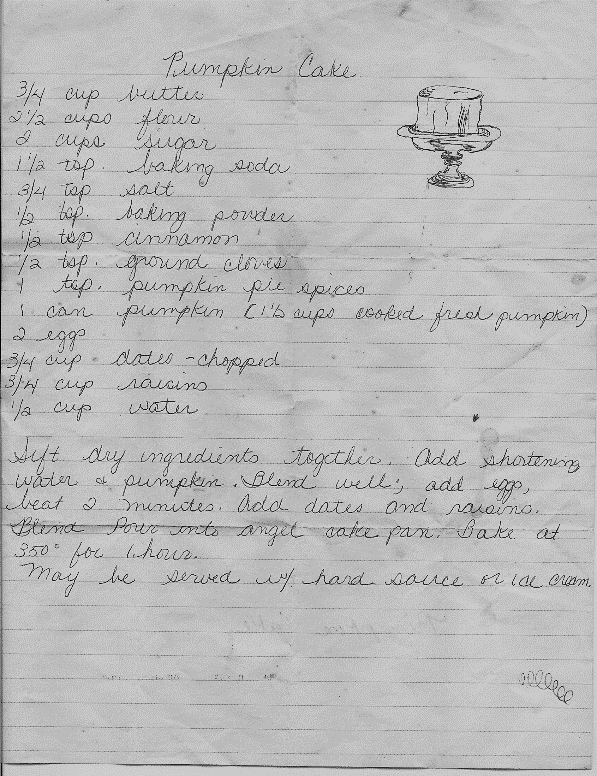 Pumpkin Cake
3/4 cup butter
2 1/2 cups flour
2 cups sugar
1 1/2 tsp. baking soda
3/4 tsp salt
1/2 tsp. baking powder
1/2 tsp cinnamon
1/2 tsp. ground cloves
1 tsp. pumpkin pie spices
1 can pumpkin (1 1/2 cups cooked fresh pumpkin)
2 eggs
3/4 cup dates - chopped
3/4 cup raisins
1/2 cup water
Sift dry ingredients together. Add shortening
water & pumpkin. Blend well; add eggs,
beat 2 minutes. Add dates and raisins.
Blend Pour into angel cake pan. Bake at
350° for 1 hour.
May be served w/ hard sauce or ice cream.